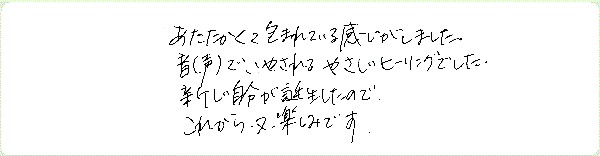 あたたかくて包まれている感じがしました。
音(声)でいやされる やさしいヒーリングでした.
新しい自分が誕生したので
これから又.楽しみです.